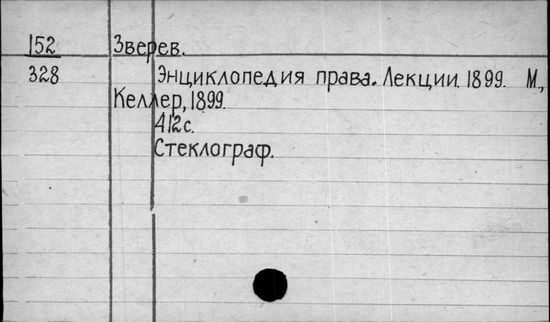 152 Зверев.
328 Энциклопедия права. Лекции. 1899. М.,
Келлер, 1899.
412с.
Стеклограф.